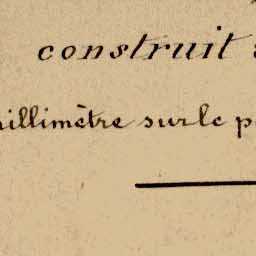 construit
illimètre sur le p